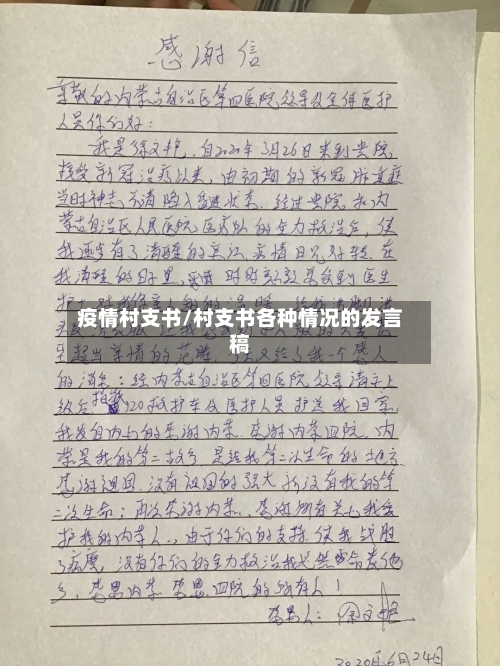 感谢信
尊敬的内蒙古自治区第四医院领导及全体医护
人员你们好:
我是徐文艳,自2020年3月26日来到贵院,
接受新冠治疗以来,由初期的新冠肺重症
当时神志不清陷入昏迷状态.经过贵院,和内
蒙古自治区人民医院医疗队的全力救治后,使
我逐步有了清醒的意识,病情日见好转.在
我清醒的时里,时时刻刻感受到医生
疫情村支书/村支书各种情况的发言
稿
的消息:经内蒙古自治区第四医院领导请示上
级后指派120救护车及医护人员护送我回家,
我发自内心的感谢内蒙.感谢内蒙四院,内
蒙是我的第二故乡,是给我第二次生命的地方
感谢祖国,没有祖国的强大,就没有我的第
二次生命;再次感谢内蒙,感谢所有关心我爱
护我的内蒙人.,由于你们的支持使我战胜
了病魔,没有你们的全力救治我必然命丧他
乡,感恩内蒙 感恩四院的所有人!
感恩人:徐文艳
2020年6月24日